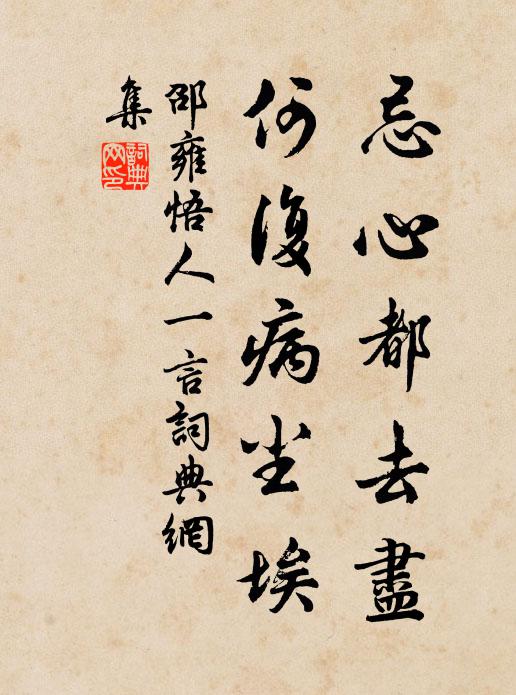 忌心都去盡
何復病尘埃
邵雍悟人一言詞典網
集
詞典網印